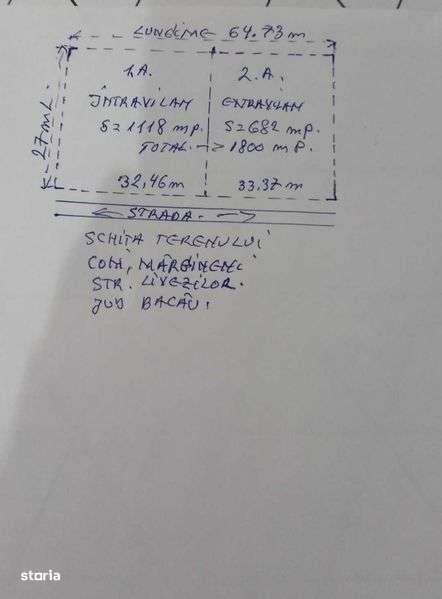 LUNGIME 64.73 m
27 ML.
1A. 2.A.
INTRAVILAN EXTRAVILAN
S=1118 mp. S=682 mp.
TOTAL. → 1800 m P.
32,46 m 33,37 m
← STRADA. →
SCHITA TERENULUI
COM, MĂRGINENI
STR. LIVEZILOR.
JUD BACĂU.
storia